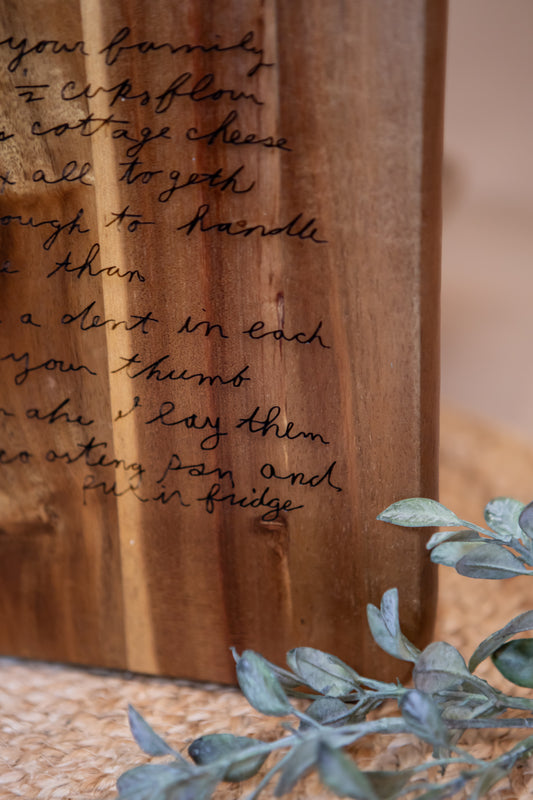 your family
½ cups flour
s cottage cheese
x all togeth
ough to handle
than
a dent in each
your thumb
I lay them
pan and
Put in fridge